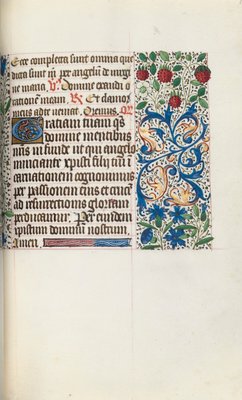 Ecce completa sunt omnia que
dicta sunt per angelū de virgi
ne maria. V. Domine exaudi o
rationē meam. R. Et clamor
meus ad te veniat. Oremus. Oro
Gratiam tuam qs
domine mentibus
nris infunde ut qui angelo
nunciante xpisti filij tui in
carnationem cognouimus
per passionem eius et crucē
ad resurrectionis gloriam
perducamur. Per eundem
xpistum dominū nostrum.
Amen.